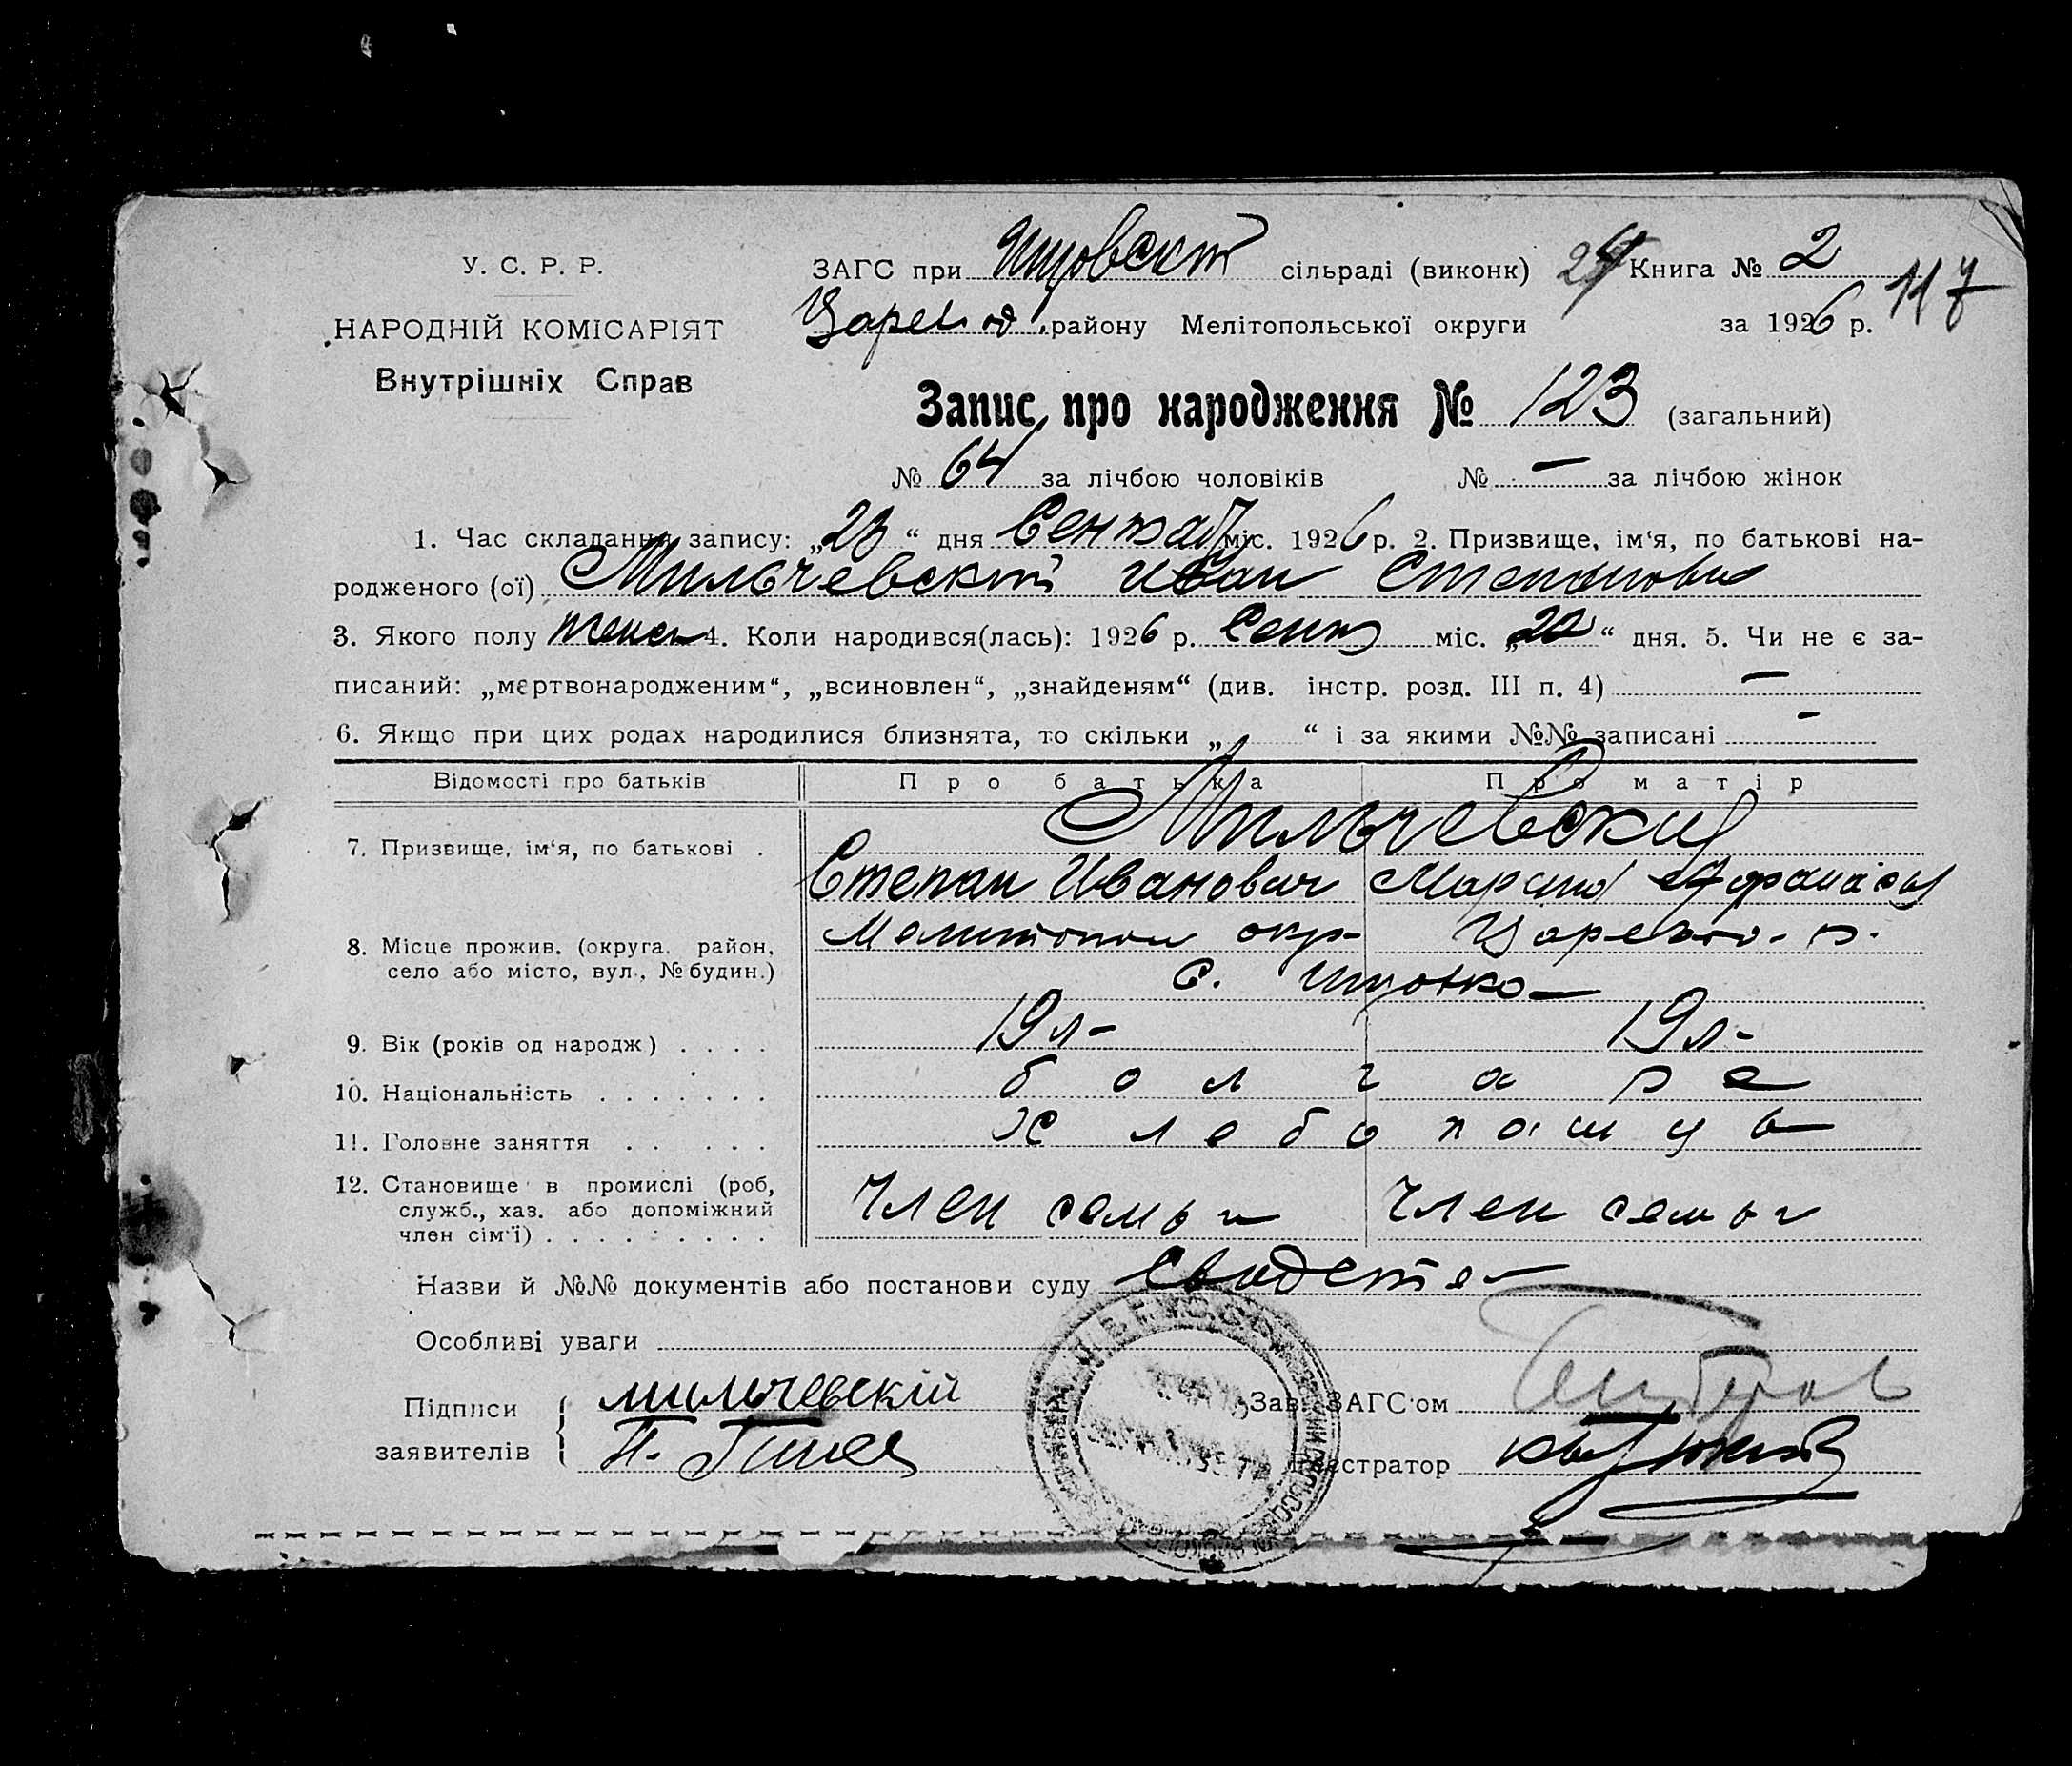 У. С. Р. Р.
НАРОДНІЙ КОМІСАРІЯТ
Внутрішніх Справ
ЗАГС при сільраді (виконк) 24 Книга № 2
117
району Мелітопольської округи за 1926 р.
Запис про народження № 123 (загальний)
№ 64 за лічбою чоловіків № — за лічбою жінок
1. Час складання запису: „23“ дня Сентяб міс. 1926 р. 2. Призвище, ім‘я, по батькові на-
родженого (ої) Мильчевский Иван Степанович
3. Якого полу 4. Коли народився(лась): 1926 р. Сент міс. „20“ дня. 5. Чи не є за-
писаний: „мертвонародженим“, „всиновлен“, „знайденям“ (див. інстр. розд. III п. 4) —
6. Якщо при цих родах народилися близнята, то скільки „ “ і за якими №№ записані —
Відомості про батьків Про батька Про матір
7. Призвище, ім‘я, по батькові . Мильчевский
Степан Иванович Мария Афанасьев
8. Місце прожив. (округа, район, село або місто, вул., № будин.) Мелитопол окр- р.
с.
9. Вік (років од народж) . . . . 19 л- 19 л-
10. Національність . . . . . . . болгаре
11. Головне заняття . . . . . хлебопашцы
12. Становище в промислі (роб, служб., хаз. або допоміжний член сім‘ї) . . . . . . . . . член семьи член семьи
Назви й №№ документів або постанови суду
Особливі уваги
Підписи заявителів { мильчевскій
П.
Зав. ЗАГС‘ом
Реєстратор